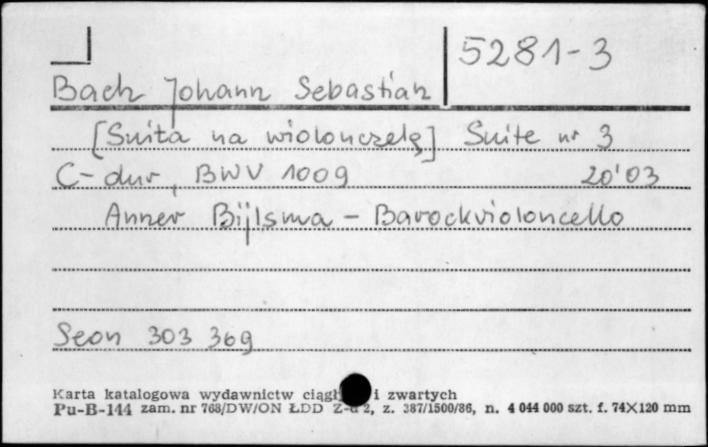 5281-3
Bach Johann Sebastian
[Suita na wiolonczelę] Suite nr 3
C-dur, BWV 1009 20'03
Anner Bijlsma - Barockvioloncello
Seon 303 369
Karta katalogowa wydawnictw i zwartych
Pu-B-144 zam. nr 768/DW/ON ŁDD 2, z. 387/1500/86, n. 4 044 000 szt. f. 74X120 mm